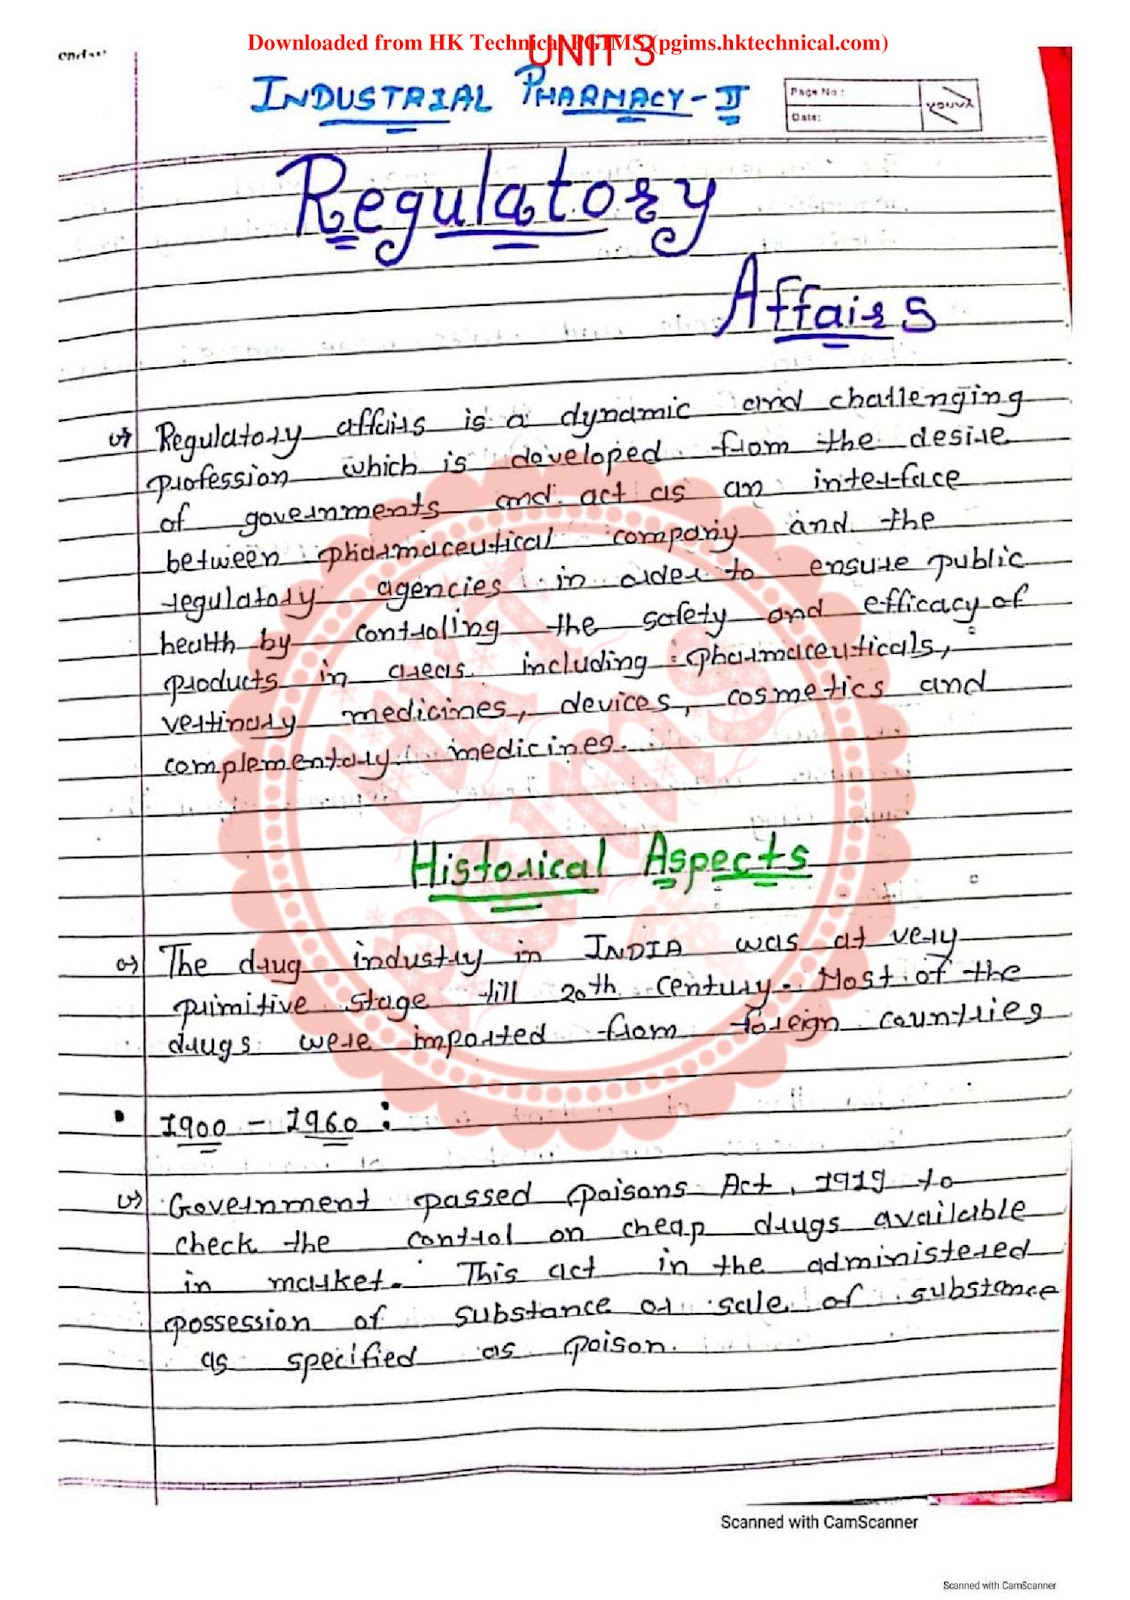 Downloaded from HK Technical PGIMS (pgims.hktechnical.com)
UNIT 3
INDUSTRIAL PHARMACY-II
Page No.:
Date:
YOUVA
Regulatory
Affairs
Regulatory affairs is a dynamic and challenging
profession which is developed from the desire
of governments and act as an interface
between pharmaceutical company and the
regulatory agencies in order to ensure public
health by controling the safety and efficacy of
products in areas including pharmaceuticals,
vertinary medicines, devices, cosmetics and
complementary medicines.
Historical Aspects
The drug industry in INDIA was at very
primitive stage till 20th century. Most of the
drugs were imported from foreign countries
• 1900 - 1960 :
Government passed poisons Act, 1919 to
check the control on cheap drugs available
in market. This act in the administered
possession of substance or sale of substance
as specified as poison.
HK
PGIMS
Scanned with CamScanner
Scanned with CamScanner